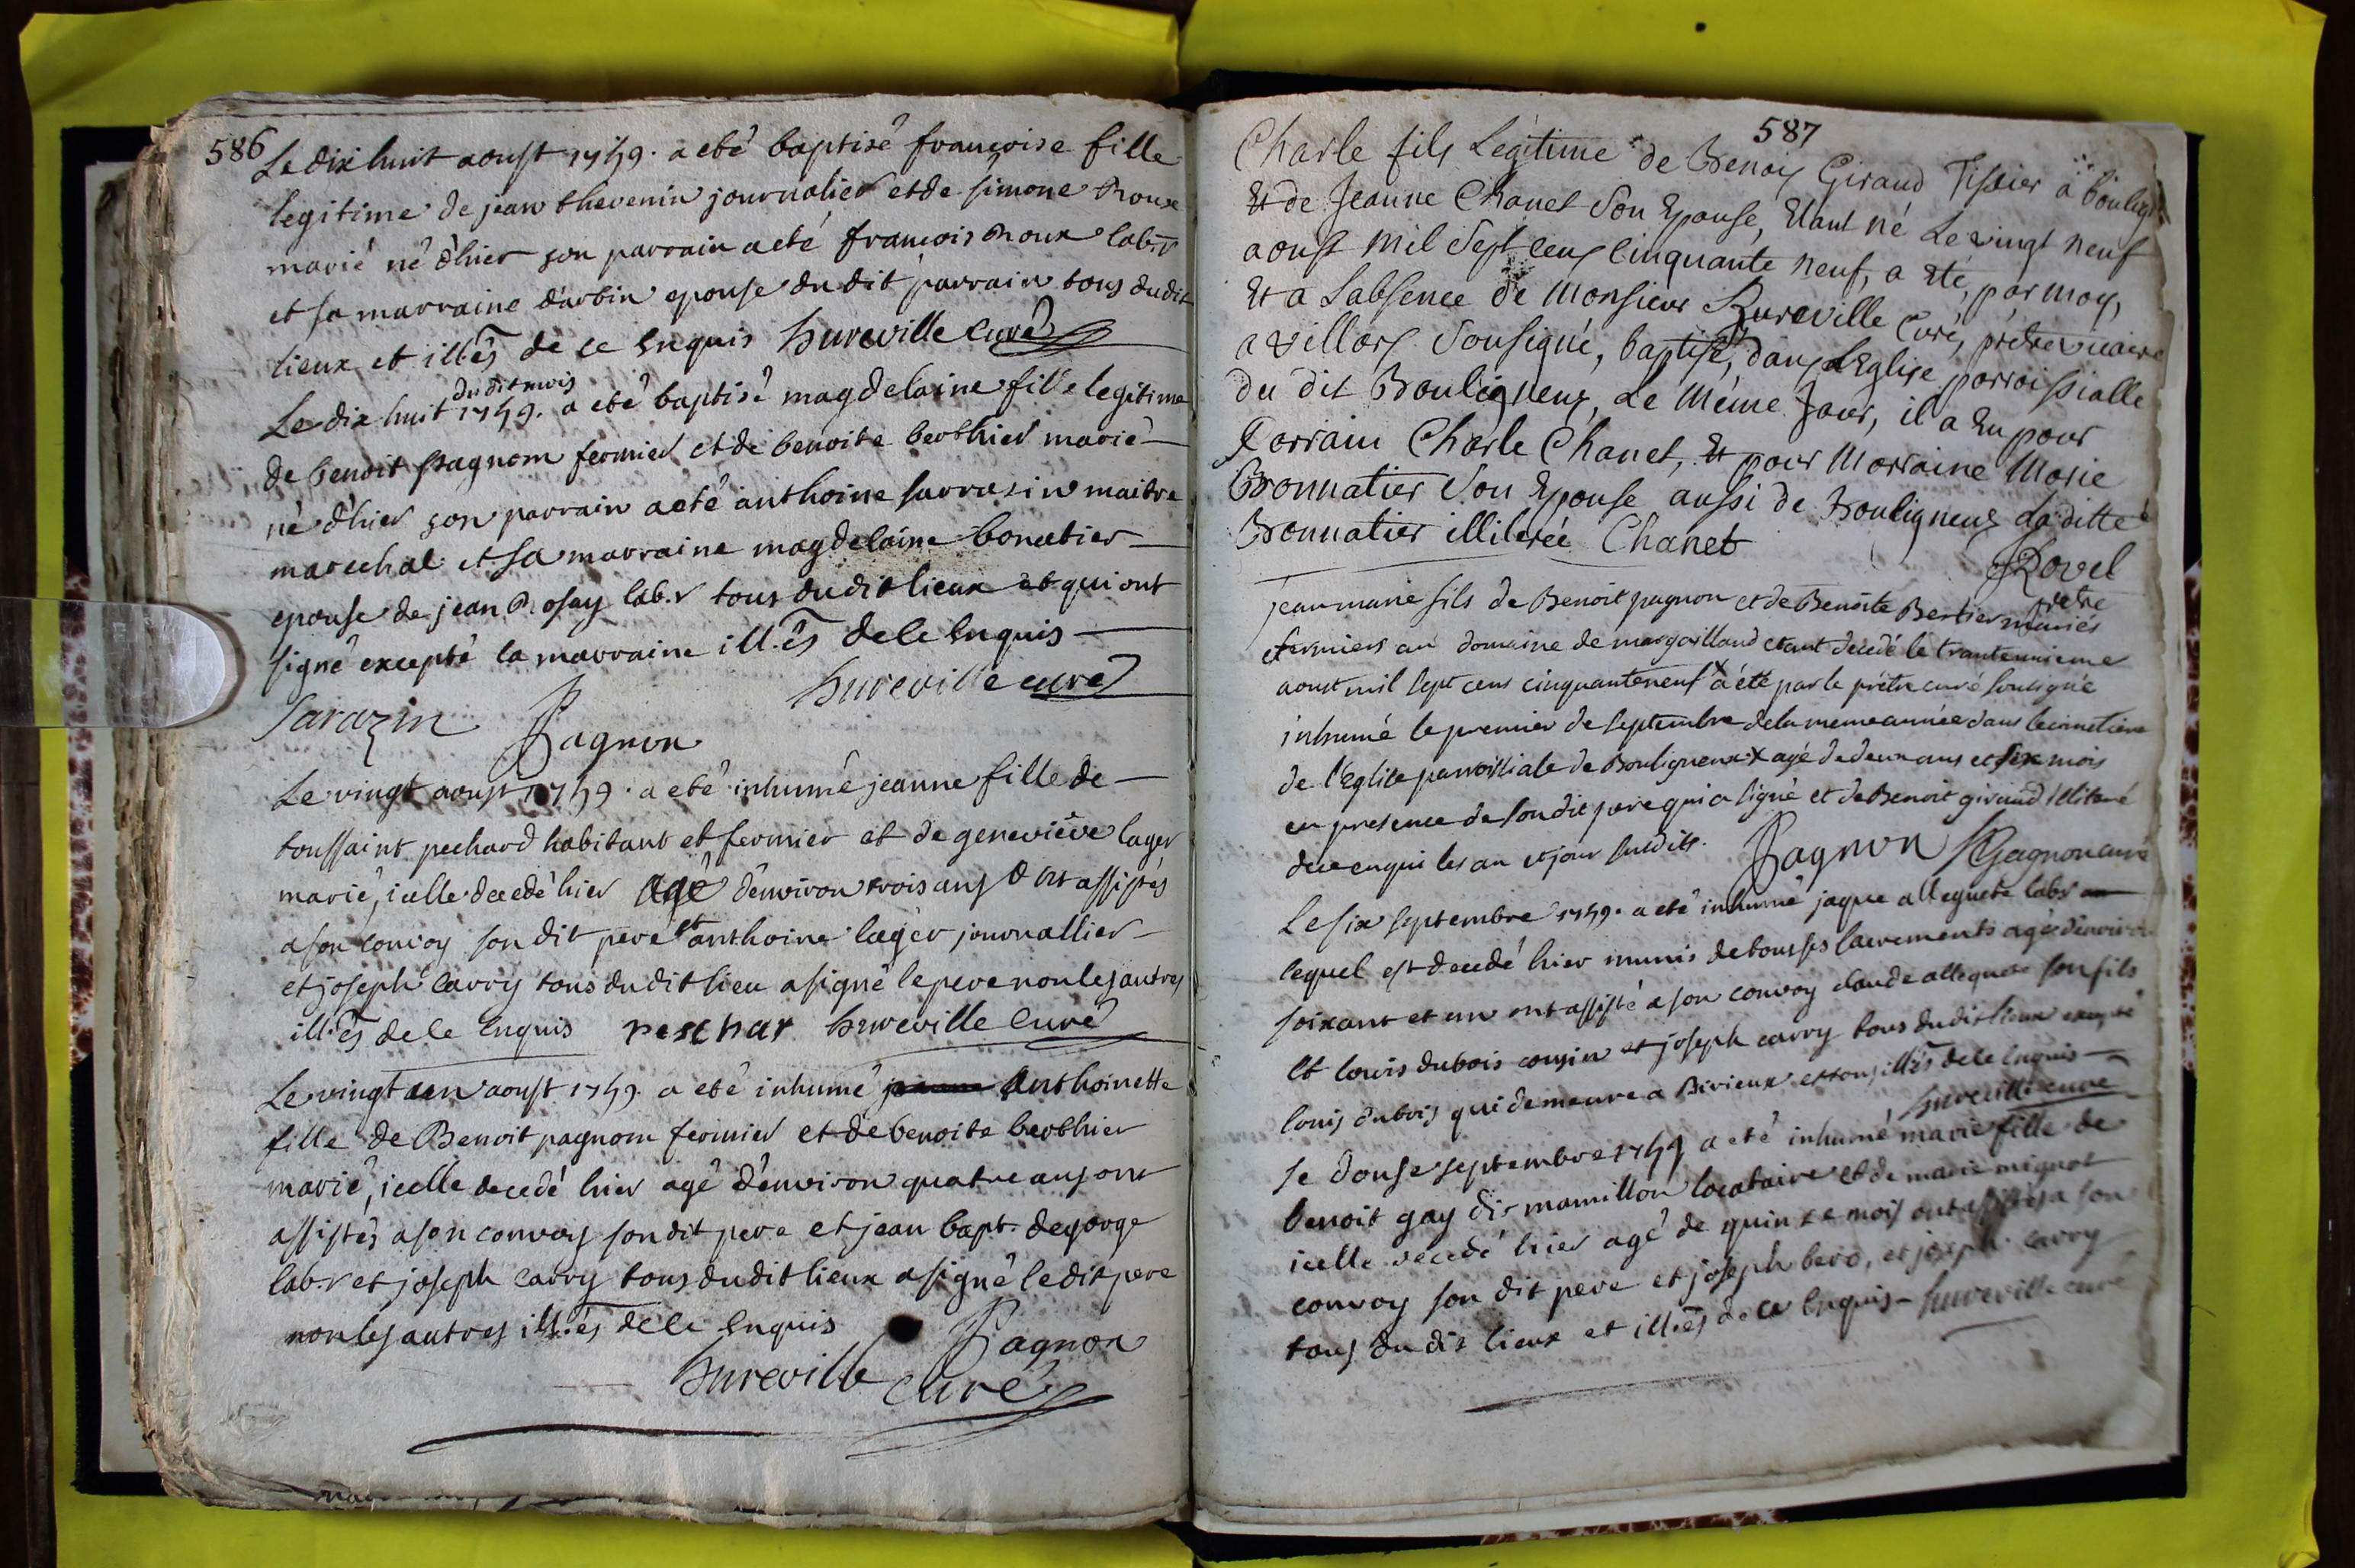 586
Le dix huit aoust 1759. a eté baptisé francoise fille
legitime de jean thevenin journalier et de simone Roux
marié né d'hier son parrain a eté francois Roux labr
et sa marraine darbin epouse du dit parrain tous du dit
lieux et illés de ce enquis hureville curé
du dit mois
Le dix huit 1759. a eté baptisé magdelaine fille legitime
de benoit pagnom fermier et de benoite berthier marié
né d'hier son parrain a eté anthoine sarrasin maitre
marechal et sa marraine magdelaine bonatier
epouse de jean Rosay lab.r tous du dit lieux et qui ont
signé excepté la marraine ill.és de ce enquis
hureville curé
Sarazin Pagnon
Le vingt aoust 1759. a eté inhumé jeanne fille de
toussaint pechard habitant et fermier et de geneviève lager
marié, icelle decedé hier agé d'environ trois ans ont assistés
a son convoy son dit pere et anthoine lager journallier
et joseph carry tous du dit lieu a signé le pere non les autres
ill.és de ce enquis peschar hureville curé
Le vingt un aoust 1759. a eté inhumé Anthoinette
fille de Benoit pagnom fermier et de benoite berthier
marié, icelle decedé hier agé d'environ quatre ans ont
assistés a son convoy son dit pere et jean bapt. degorge
lab.r et joseph carry tous du dit lieux a signé le dit pere
non les autres ill.és de ce enquis Pagnon
hureville curé
587
Charle fils Légitime de Benois Giraud Tissier à
Et de Jeanne Chanet Son Epouse, Etant né Le vingt neuf
aoust mil Sept cens Cinquante neuf, a Eté, par moy,
Et a Labsence de Monsieur Hureville Curé, prêtre vicaire
a villars Sousigné, baptisé, dans L'Eglise parroissialle
du dit Bouligneux, Le Même Jour, il a Eu pour
Parrain Charle Chanet, Et pour Marraine Marie
Bonnatier Son Epouse aussi de Bouligneux La ditte
Bonnatier illiterée Chanet
Rovel
prêtre
jean marie fils de Benoit pagnon et de Benoite Bertier mariés
et fermiers au domaine de margaillaud etant decedé le trantunieme
aoust mil sept cens cinquante neuf x a été par le prêtre curé sousigné
inhumé le premier de septembre de la meme année dans le cimetiere
de l'eglise parroissiale de Bouligneux x agé de deux ans et six mois
en presence de son dit pere qui a signé et de Benoit giraud illiteré
de ce enqui les an et jour susdits. Pagnon Gagnon curé
Le six septembre 1759. a eté inhumé jaque alleguete labr
lequel est decedé hier munis de tous ses sacrements agé d'environ
soixant et un ont assisté a son convoy claude alleguete son fils
et louis dubois cousin et joseph carry tous du dit lieux excepté
louis dubois qui demeure a Birieux et tous illés de ce enquis
hureville curé
Le douse septembre 1759 a eté inhumé marie fille de
benoit gay dit mamillon locataire et de marie mignot
icelle decedé hier agé de quinze mois ont assistés a son
convoy son dit pere et joseph bero, et joseph carry
tous du dit lieux et ill.és de ce enquis hureville curé